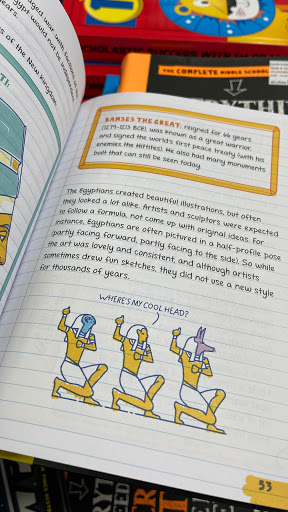 SCHOLASTIC SUCCESS WITH
THE COMPLETE MIDDLE SCHOOL
aged war with
years.
Egypt would not be
s of the New Kingdom
RAMSES THE GREAT: reigned for 66 years
(1279–1213 BCE), was known as a great warrior,
and signed the world's first peace treaty (with his
enemies the Hittites). He also had many monuments
built that can still be seen today.
The Egyptians created beautiful illustrations, but often
they looked a lot alike. Artists and sculptors were expected
to follow a formula, not come up with original ideas. For
instance, Egyptians are often pictured in a half-profile pose
(partly facing forward, partly facing to the side). So while
the art was lovely and consistent, and although artists
sometimes drew fun sketches, they did not use a new style
for thousands of years.
WHERE'S MY COOL HEAD?
53